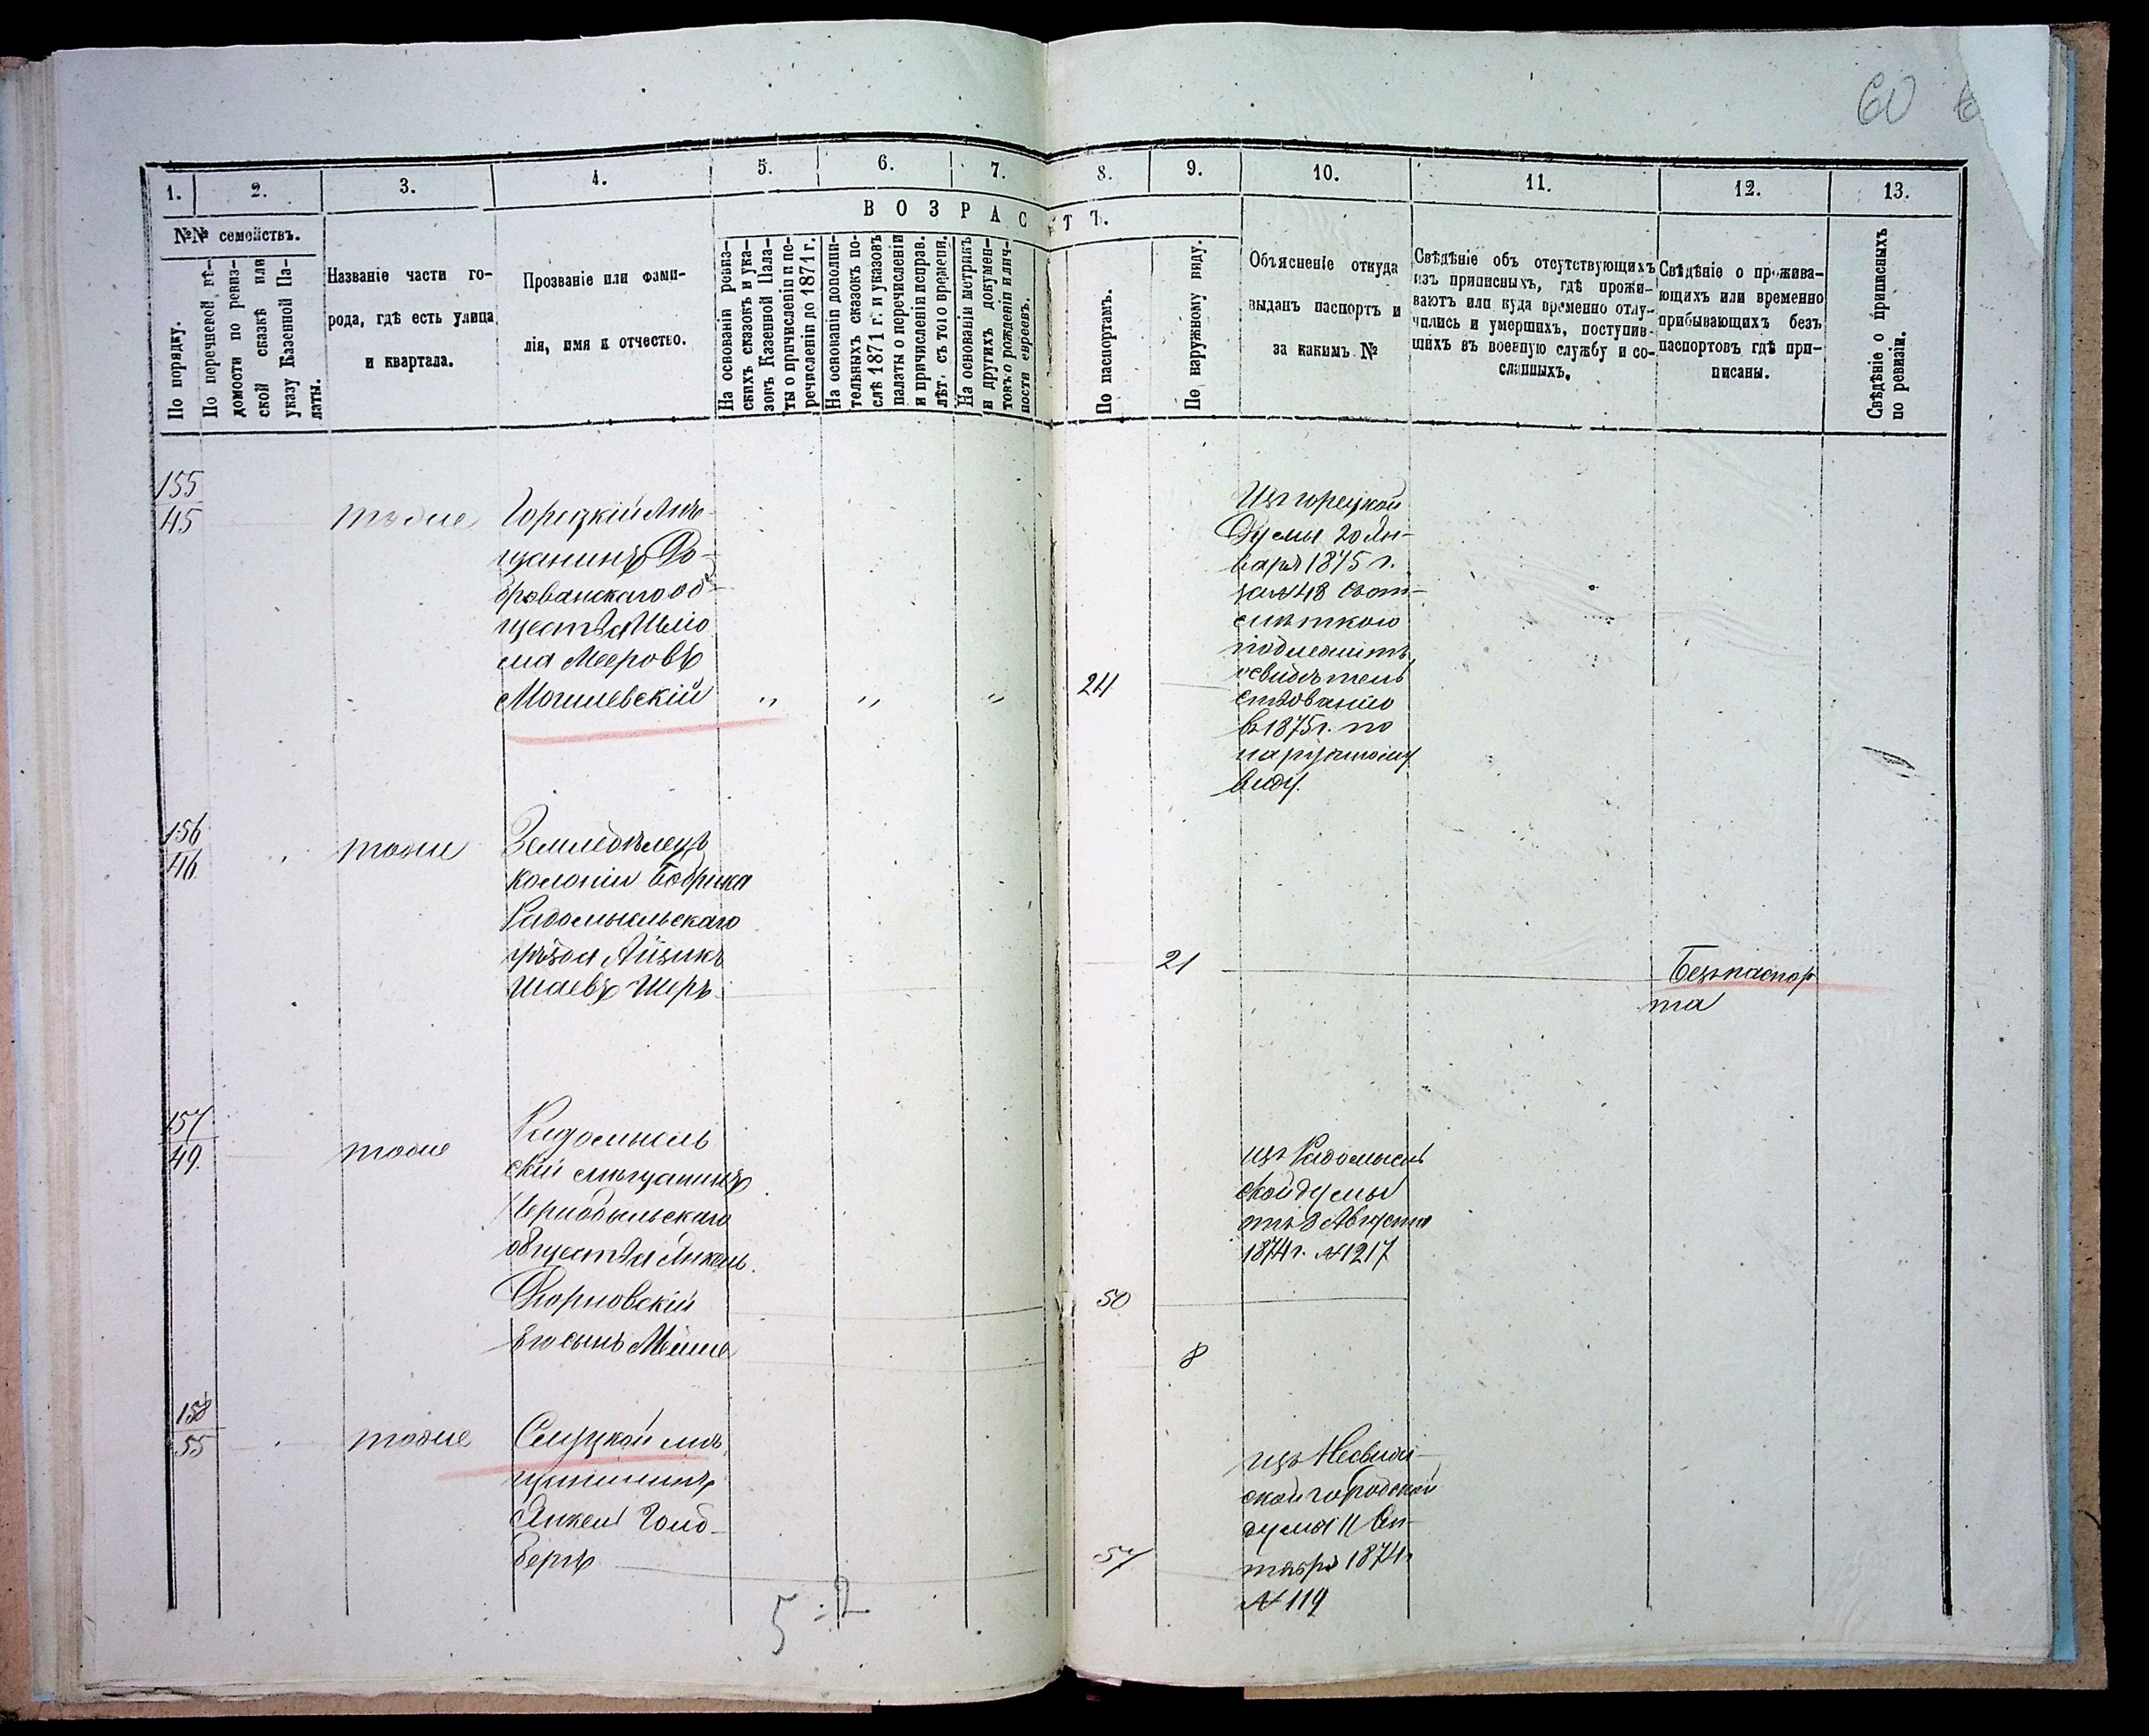 60
1.
2.
3.
4.
5.
6.
7.
8.
9.
10.
11.
12.
13.
ВОЗРАСТЪ.
№№ семействъ.
По порядку.
По перечневой вѣ-
домости по ревиз-
ской сказкѣ или
указу Казенной Па-
латы.
Названіе части го-
рода, гдѣ есть улица
и квартала.
Прозваніе или фами-
лія, имя и отчество.
На основаніи ревиз-
скихъ сказокъ и ука-
зокъ Казенной Пала-
ты о причисленіи и пе-
речисленіи до 1871 г.
На основаніи дополни-
тельныхъ сказокъ по-
слѣ 1871 г. и указовъ
палаты о перечисленіи
и причисленіи исправ.
лѣт. съ того времени.
На основаніи метрикъ
и другихъ докумен-
товъ о рожденіи и лич-
ности евреевъ.
По паспортамъ.
По наружному виду.
Объясненіе откуда
выданъ паспортъ и
за какимъ №
Свѣдѣніе объ отсутствующихъ
изъ приписныхъ, гдѣ прожи-
ваютъ или куда временно отлу-
чились и умершихъ, поступив-
шихъ въ военную службу и со-
сланныхъ.
Свѣдѣніе о прожива-
ющихъ или временно
прибывающихъ безъ
паспортовъ гдѣ при-
писаны.
Свѣдѣніе о приписныхъ
по ревизіи.
155
45
тоже
Горецкій мѣ-
щанинъ До-
бровнскаго об-
щества Шліо
ма Мееровъ
Могилевскій " " "
24
Изъ горецкой
Думы 20 Ян-
варя 1875 г.
за № 48 съ от-
мѣткою
подлежитъ
освидѣтель
ствованію
въ 1875 г. по
наружному
виду.
156
46
тоже
Земледѣлецъ
колоніи Бобрика
Радомысльскаго
уѣзда Айзикъ
Шаевъ Шеръ
21
Безъ паспор
та
157
49.
тоже
Радомысль
скій мѣщанинъ
Чернобыльскаго
общества Янкель
Дворновскій
Его сынъ Мейше
50
8
изъ Радомысль
ской думы
отъ 8 Августа
1874 г. № 1217
158
55
тоже
Слуцкой мѣ
щанинъ
Янкель Голд-
бергъ
57
изъ Несвиж-
ской городской
думы 11 Ок-
тября 1874 г
№ 119
5 - 2